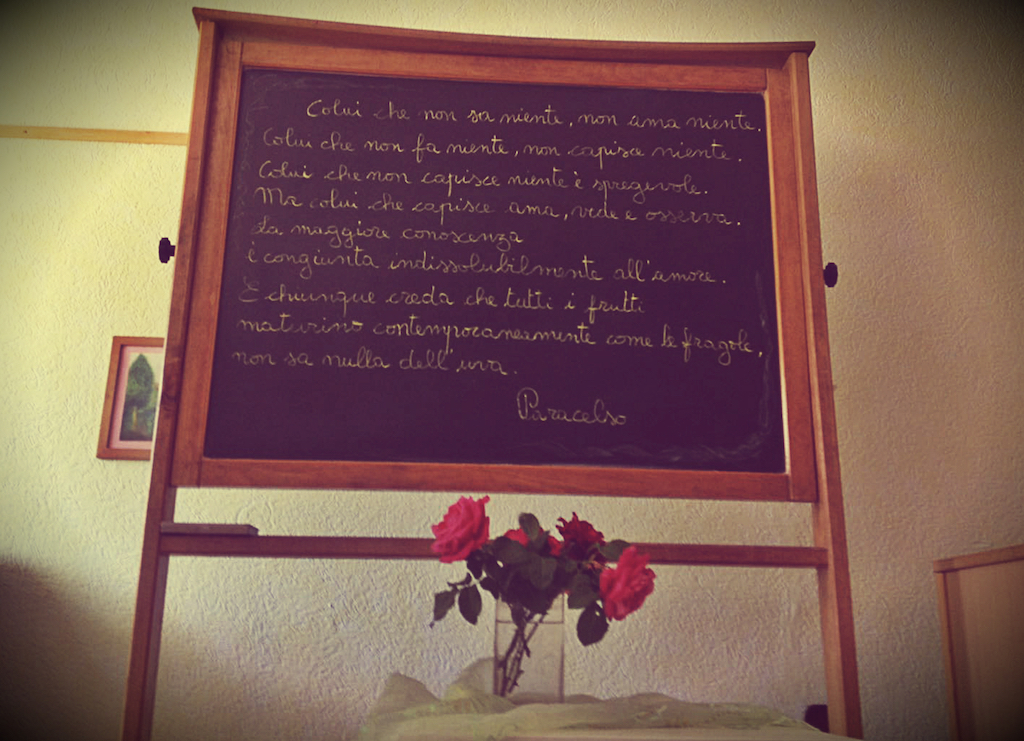 Colui che non sa niente, non ama niente.
Colui che non fa niente, non capisce niente.
Colui che non capisce niente è spregevole.
Ma colui che capisce ama, vede e osserva.
La maggiore conoscenza
è congiunta indissolubilmente all'amore.
E chiunque creda che tutti i frutti
maturino contemporaneamente come le fragole,
non sa nulla dell'uva.
Paracelso